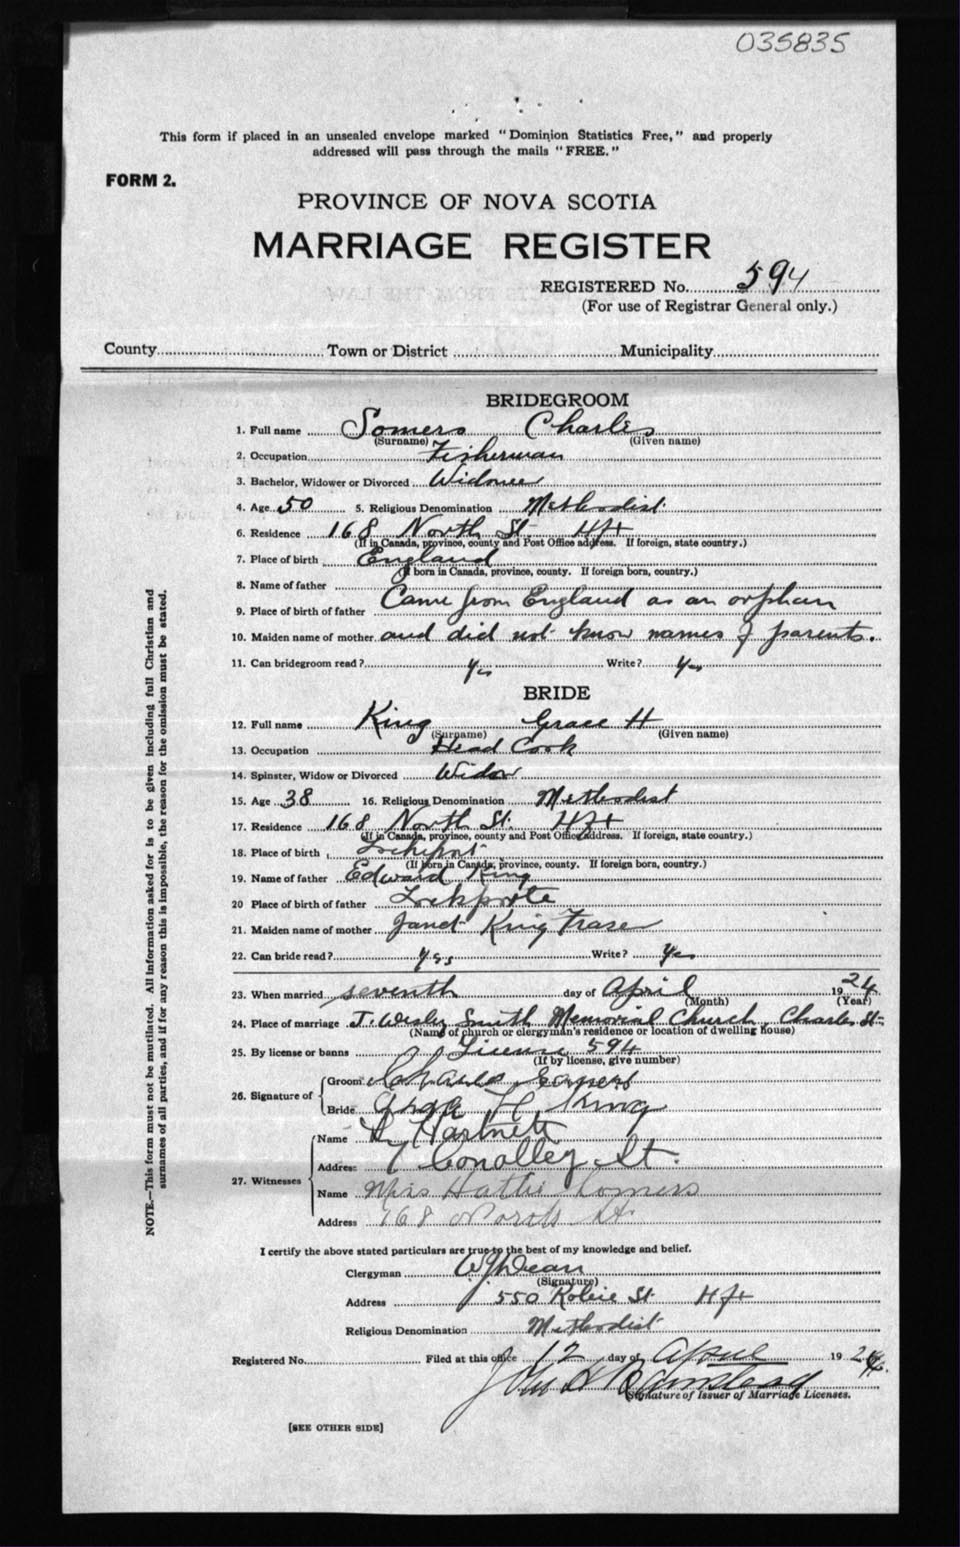 035835
This form if placed in an unsealed envelope marked "Dominion Statistics Free," and properly
addressed will pass through the mails "FREE."
FORM 2.
PROVINCE OF NOVA SCOTIA
MARRIAGE REGISTER
REGISTERED No. 594
(For use of Registrar General only.)
County Town or District Municipality
BRIDEGROOM
1. Full name Somers Charles
(Surname) (Given name)
2. Occupation Fisherman
3. Bachelor, Widower or Divorced Widower
4. Age 50 5. Religious Denomination Methodist
6. Residence 168 North St. Hfx
(If in Canada, province, county and Post Office address. If foreign, state country.)
7. Place of birth England
(If born in Canada, province, county. If foreign born, country.)
8. Name of father
9. Place of birth of father Came from England as an orphan
10. Maiden name of mother and did not know names of parents.
11. Can bridegroom read? Yes Write? Yes
BRIDE
12. Full name King Grace H
(Surname) (Given name)
13. Occupation Head Cook
14. Spinster, Widow or Divorced Widow
15. Age 38 16. Religious Denomination Methodist
17. Residence 168 North St. Hfx
(If in Canada, province, county and Post Office address. If foreign, state country.)
18. Place of birth Lockport
(If born in Canada, province, county. If foreign born, country.)
19. Name of father Edward King
20 Place of birth of father Lockporte
21. Maiden name of mother Janet King Fraser
22. Can bride read? Yes Write? Yes
23. When married seventh day of April 1924
(Month) (Year)
24. Place of marriage J. Wesley Smith Memorial Church, Charles St.
(Name of church or clergyman's residence or location of dwelling house)
25. By license or banns License 594
(If by license, give number)
26. Signature of
Groom Charles Somers
Bride Grace H King
27. Witnesses
Name Hartnett
Address 7 Conolley St.
Name Miss Hattie Somers
Address 168 North St.
I certify the above stated particulars are true to the best of my knowledge and belief.
Clergyman W J Dean
(Signature)
Address 550 Robie St Hfx
Religious Denomination Methodist
Registered No. Filed at this office 12 day of April 1924
John H Barnstead
(Signature of Issuer of Marriage Licenses.
[SEE OTHER SIDE]
NOTE.—This form must not be mutilated. All information asked for is to be given including full Christian and
surnames of all parties, and if for any reason this is impossible, the reason for the omission must be stated.